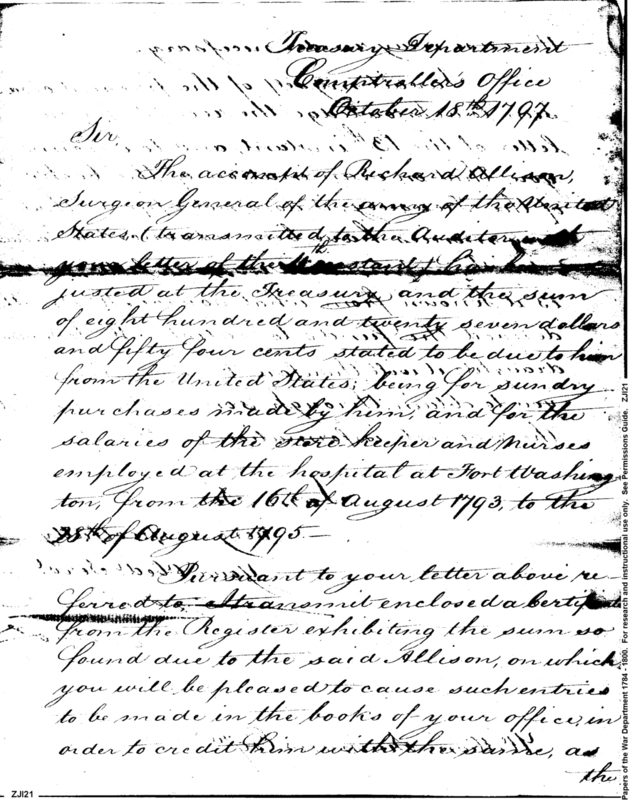 Treasury Department
Comptroller's Office
October 18th 1797.
Sir,
The account of Richard Allison,
Surgeon General of the army of the United
States, (transmitted to the Auditor
your letter of the instant) has
justed at the Treasury, and the sum
of eight hundred and twenty seven dollars
and fifty four cents stated to be due to him
from the United States; being for sundry
purchases made by him, and for the
salaries of the store keeper and nurses
employed at the hospital at Fort Washing
ton, from the 16th of August 1793, to the
of August 1795—
Pursuant to your letter above re-
ferred to, I transmit enclosed a Certificate
from the Register exhibiting the sum so
found due to the said Allison, on which
you will be pleased to cause such entries
to be made in the books of your office, in
order to credit him with the same, as
the
ZJI21
Papers of the War Department 1784 - 1800. For research and instructional use only. See Permissions Guide. ZJI21